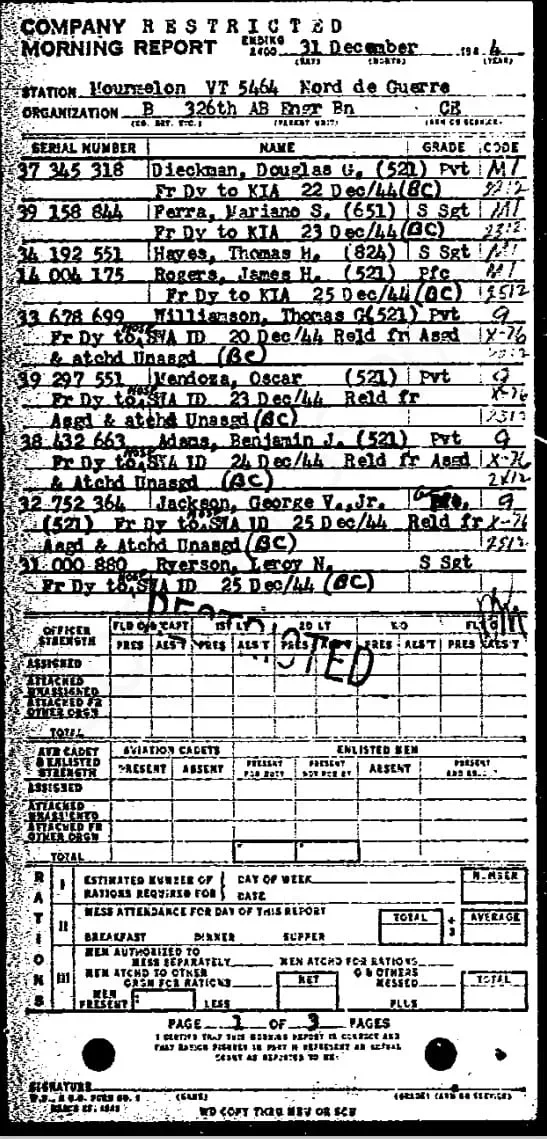 COMPANY RESTRICTED
MORNING REPORT ENDING 2400 31 December 194 4
(DAY) (MONTH) (YEAR)
STATION Mourmelon VT 5464 Nord de Guerre
ORGANIZATION B 326th AB Engr Bn CE
SERIAL NUMBER NAME GRADE CODE
37 345 318 Dieckman, Douglas G. (521) Pvt MI
Fr Dy to KIA 22 Dec/44 (BC)
39 158 844 Ferra, Mariano S. (651) S Sgt MI
Fr Dy to KIA 23 Dec/44 (BC)
34 192 551 Hayes, Thomas H. (824) S Sgt MI
14 004 175 Rogers, James H. (521) Pfc MI
Fr Dy to KIA 25 Dec/44 (BC)
33 678 699 Williamson, Thomas G (521) Pvt 9
Fr Dy to HOSP SWA ID 20 Dec/44 Reld fr Asgd X-76
& atchd Unasgd (BC)
39 297 551 Mendoza, Oscar (521) Pvt 9
Fr Dy to HOSP SWA ID 23 Dec/44 Reld fr X-76
Asgd & atchd Unasgd (BC)
38 432 663 Adams, Benjamin J. (521) Pvt 9
Fr Dy to HOSP SWA ID 24 Dec/44 Reld fr Asgd X-76
& Atchd Unasgd (BC)
32 752 364 Jackson, George V., Jr. 9
(521) Fr Dy to HOSP SWA ID 25 Dec/44 Reld fr X-76
Asgd & Atchd Unasgd (BC)
31 000 880 Ryerson, Leroy N. S Sgt
Fr Dy to HOSP SWA ID 25 Dec/44 (BC)
RESTRICTED
OFFICER STRENGTH FLD O & CAPT 1ST LT 2D LT WO FL O
PRES ABS'T PRES ABS'T PRES ABS'T PRES ABS'T
ASSIGNED
ATTACHED UNASSIGNED
ATTACHED FR OTHER ORGN
TOTAL
AVN CADET & ENLISTED STRENGTH AVIATION CADETS ENLISTED MEN
PRESENT ABSENT PRESENT FOR DUTY PRESENT NOT FOR DY ABSENT PRESENT
ASSIGNED
ATTACHED UNASSIGNED
ATTACHED FR OTHER ORGN
TOTAL
RATIONS
I ESTIMATED NUMBER OF RATIONS REQUIRED FOR { DAY OF WEEK DATE NUMBER
II MESS ATTENDANCE FOR DAY OF THIS REPORT TOTAL ÷ 3 AVERAGE
BREAKFAST DINNER SUPPER
III MEN AUTHORIZED TO MESS SEPARATELY MEN ATCHD FOR RATIONS
MEN ATCHD TO OTHER ORGN FOR RATIONS NET O & OTHERS MESSED TOTAL
MEN PRESENT LESS PLUS
PAGE 1 OF 3 PAGES
I CERTIFY THAT THIS MORNING REPORT IS CORRECT AND
SIGNATURE
(NAME) (GRADE) (ARM OR SERVICE)
WD COPY THRU MRU OR SCU